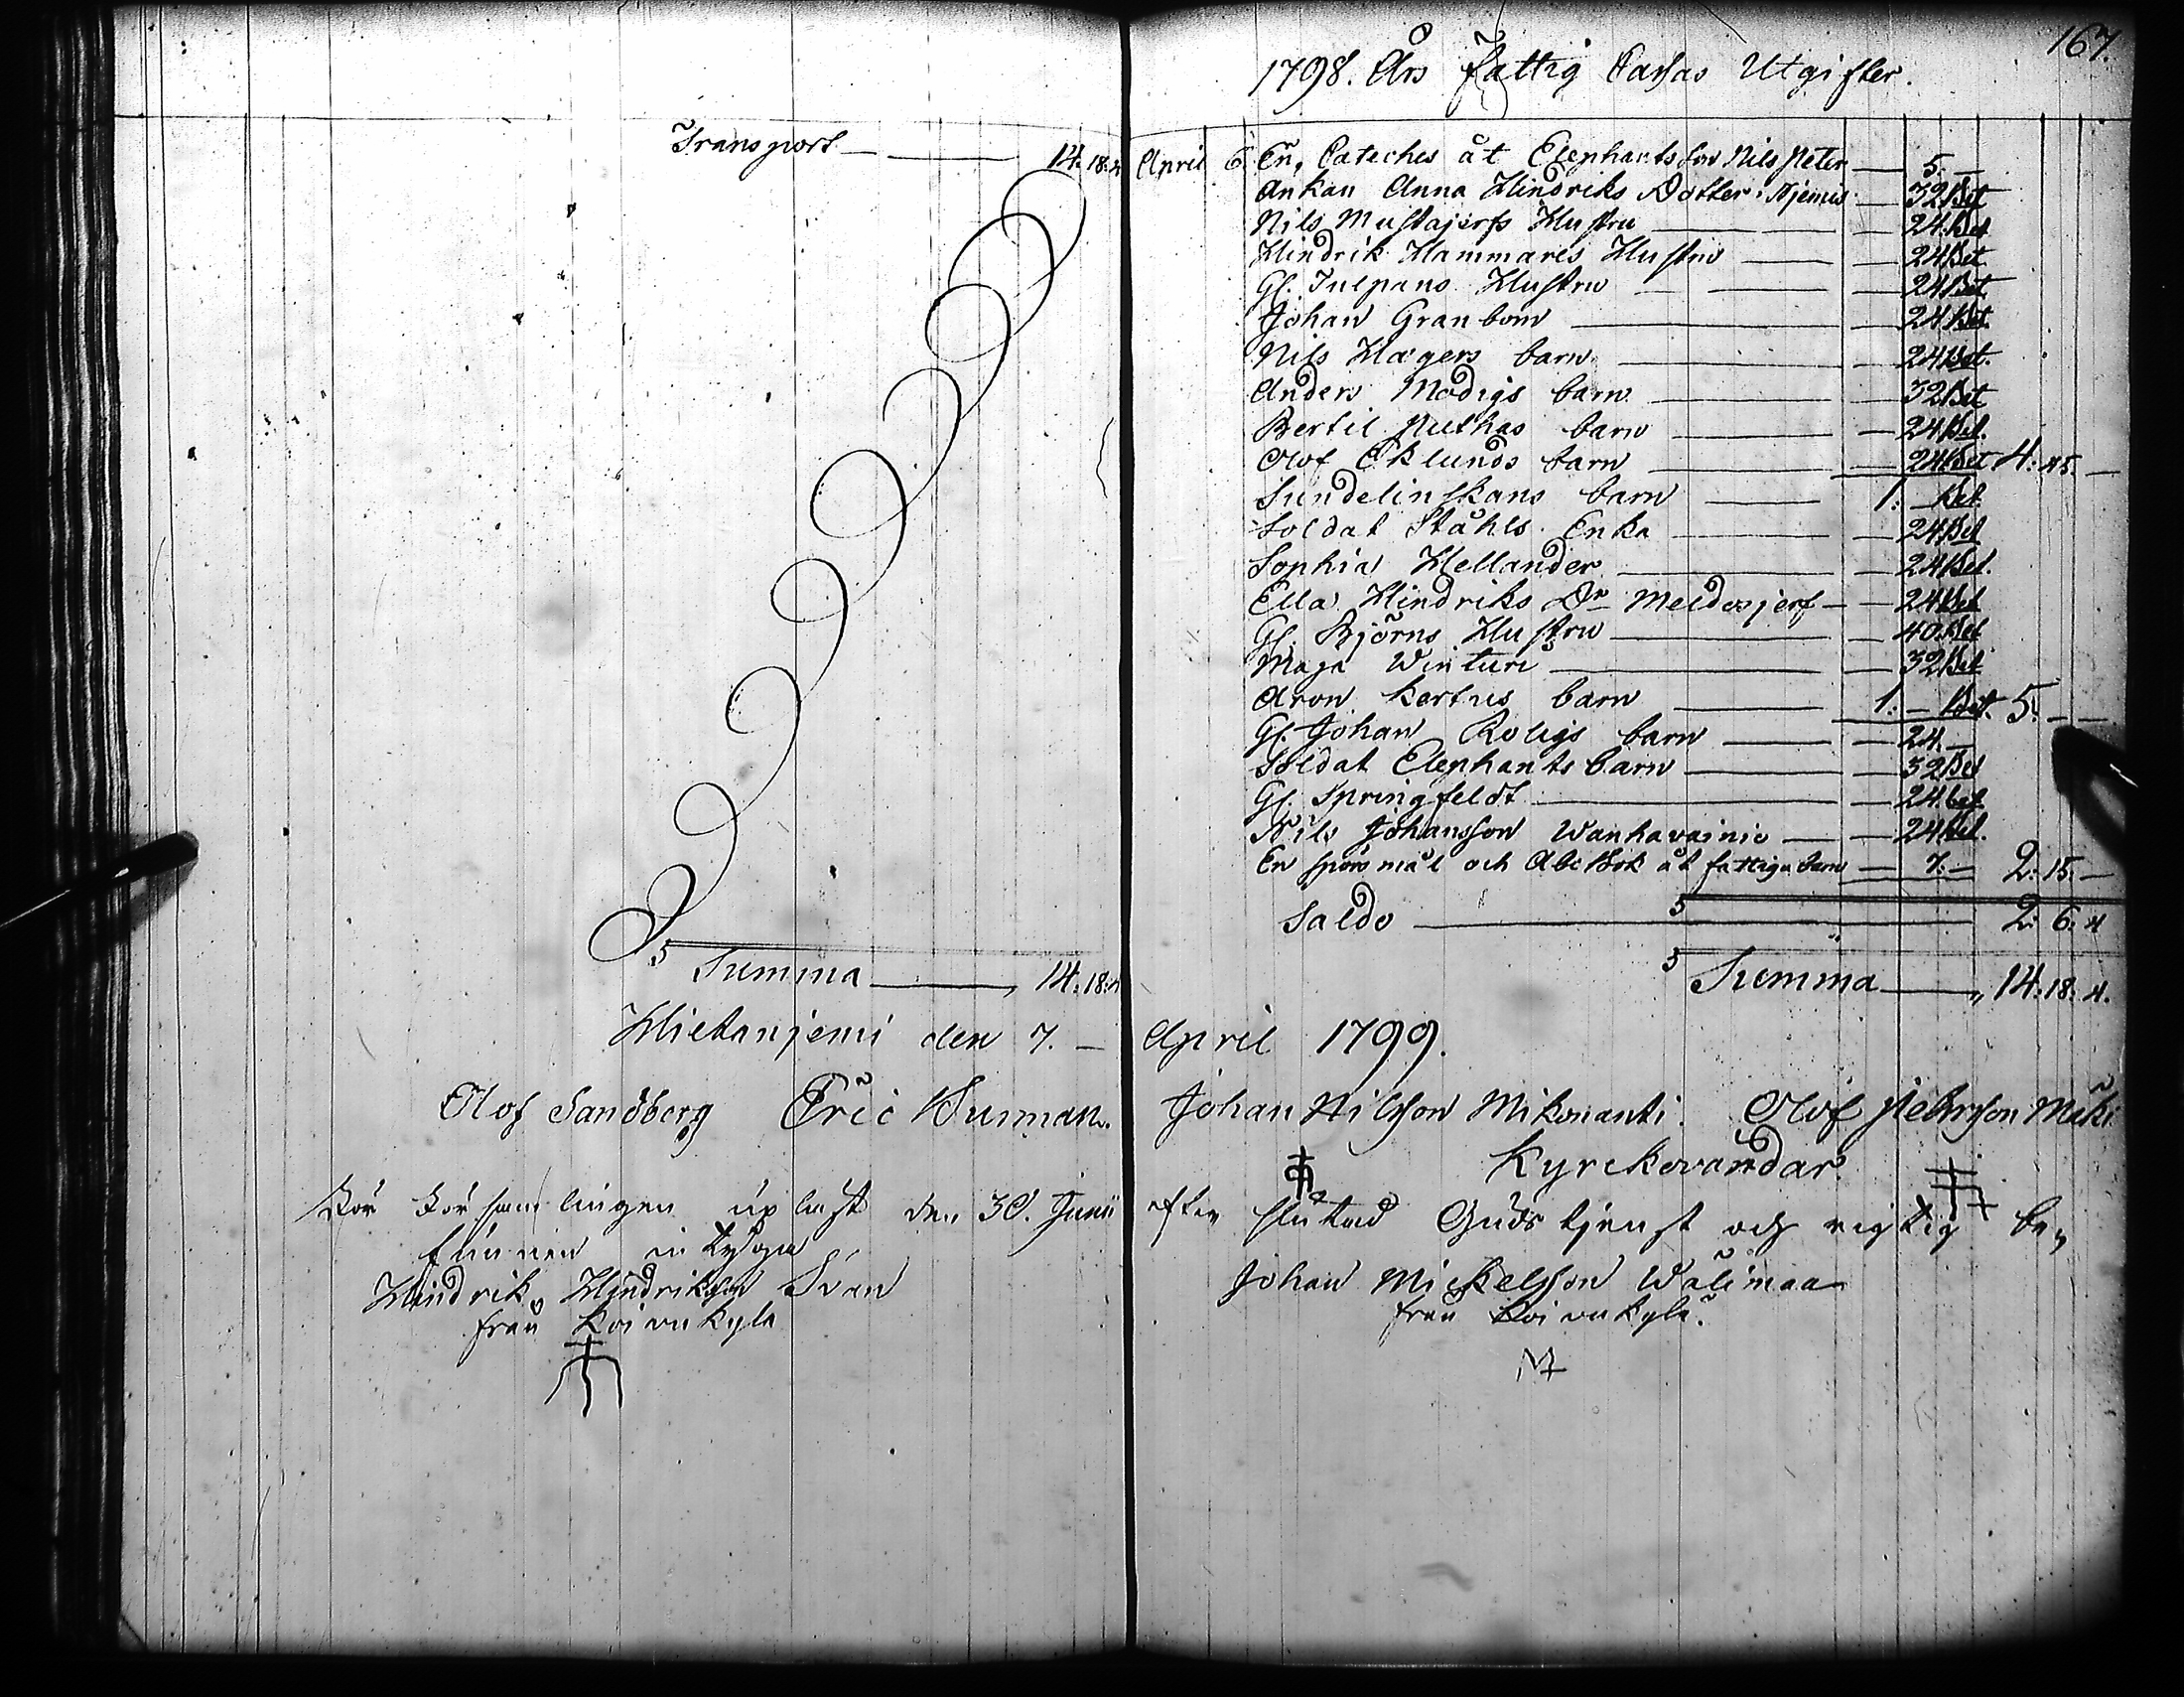 167.
1798. Års Fattig Cassas Utgifter.
Transport 14: 18: 4
April 6. En Cateches åt Elephants son Nils Peter 5. —
Änkan Anna Hindriks Dotter 32 Bet
Nils Mustajerfs Hustru 24. Bet
Hindrik Hammares Hustru 24 Bet.
Gl. Tulpans Hustru 24 Bet
Johan Granbom 24 Bet.
Nils Hägers barn 24 Bet.
Anders Modigs barn 32 Bet
Bertil Puthas barn 24 Bet.
Olof Eklunds barn 24 Bet 4: 45. —
Sundelinskans barn 1: — Bet
Soldat Ståhls Enka 24 Bet
Sophia Hellander 24 Bet.
Ella Hindriks Dr Meldosjerf 24 Bet
Gl. Björns Hustru 40. Bet
Maja Winturi 32 Bet
Aron Kertus barn 1: — Bet. 5: — —
Gl. Johan Roligs barn 24. —
Soldat Elephants barn 32 Bet
Gl. Springfeldt 24. bet
Nils Johansson Wanhavainio 24 Bet.
En spörsmål och Abc Bok åt fattiga barn 7: — 2: 15. —
Saldo 2: 6: 4
Summa 14: 18: 4
Summa 14: 18: 4.
Hietaniemi den 7. — April 1799.
Olof Sandberg Eric Burman. Johan Nilsson Mikonanti. Olof Pehrsson Mäki
Kyrckovärdar.
För Församlingen upläst den 30. Junii efter slutad Gudstjenst och rigtig be„
funnen intyga
Hindrik Hindriksson Svan Johan Mickelsson Wälimaa
från Koivukylä från Koivukylä.